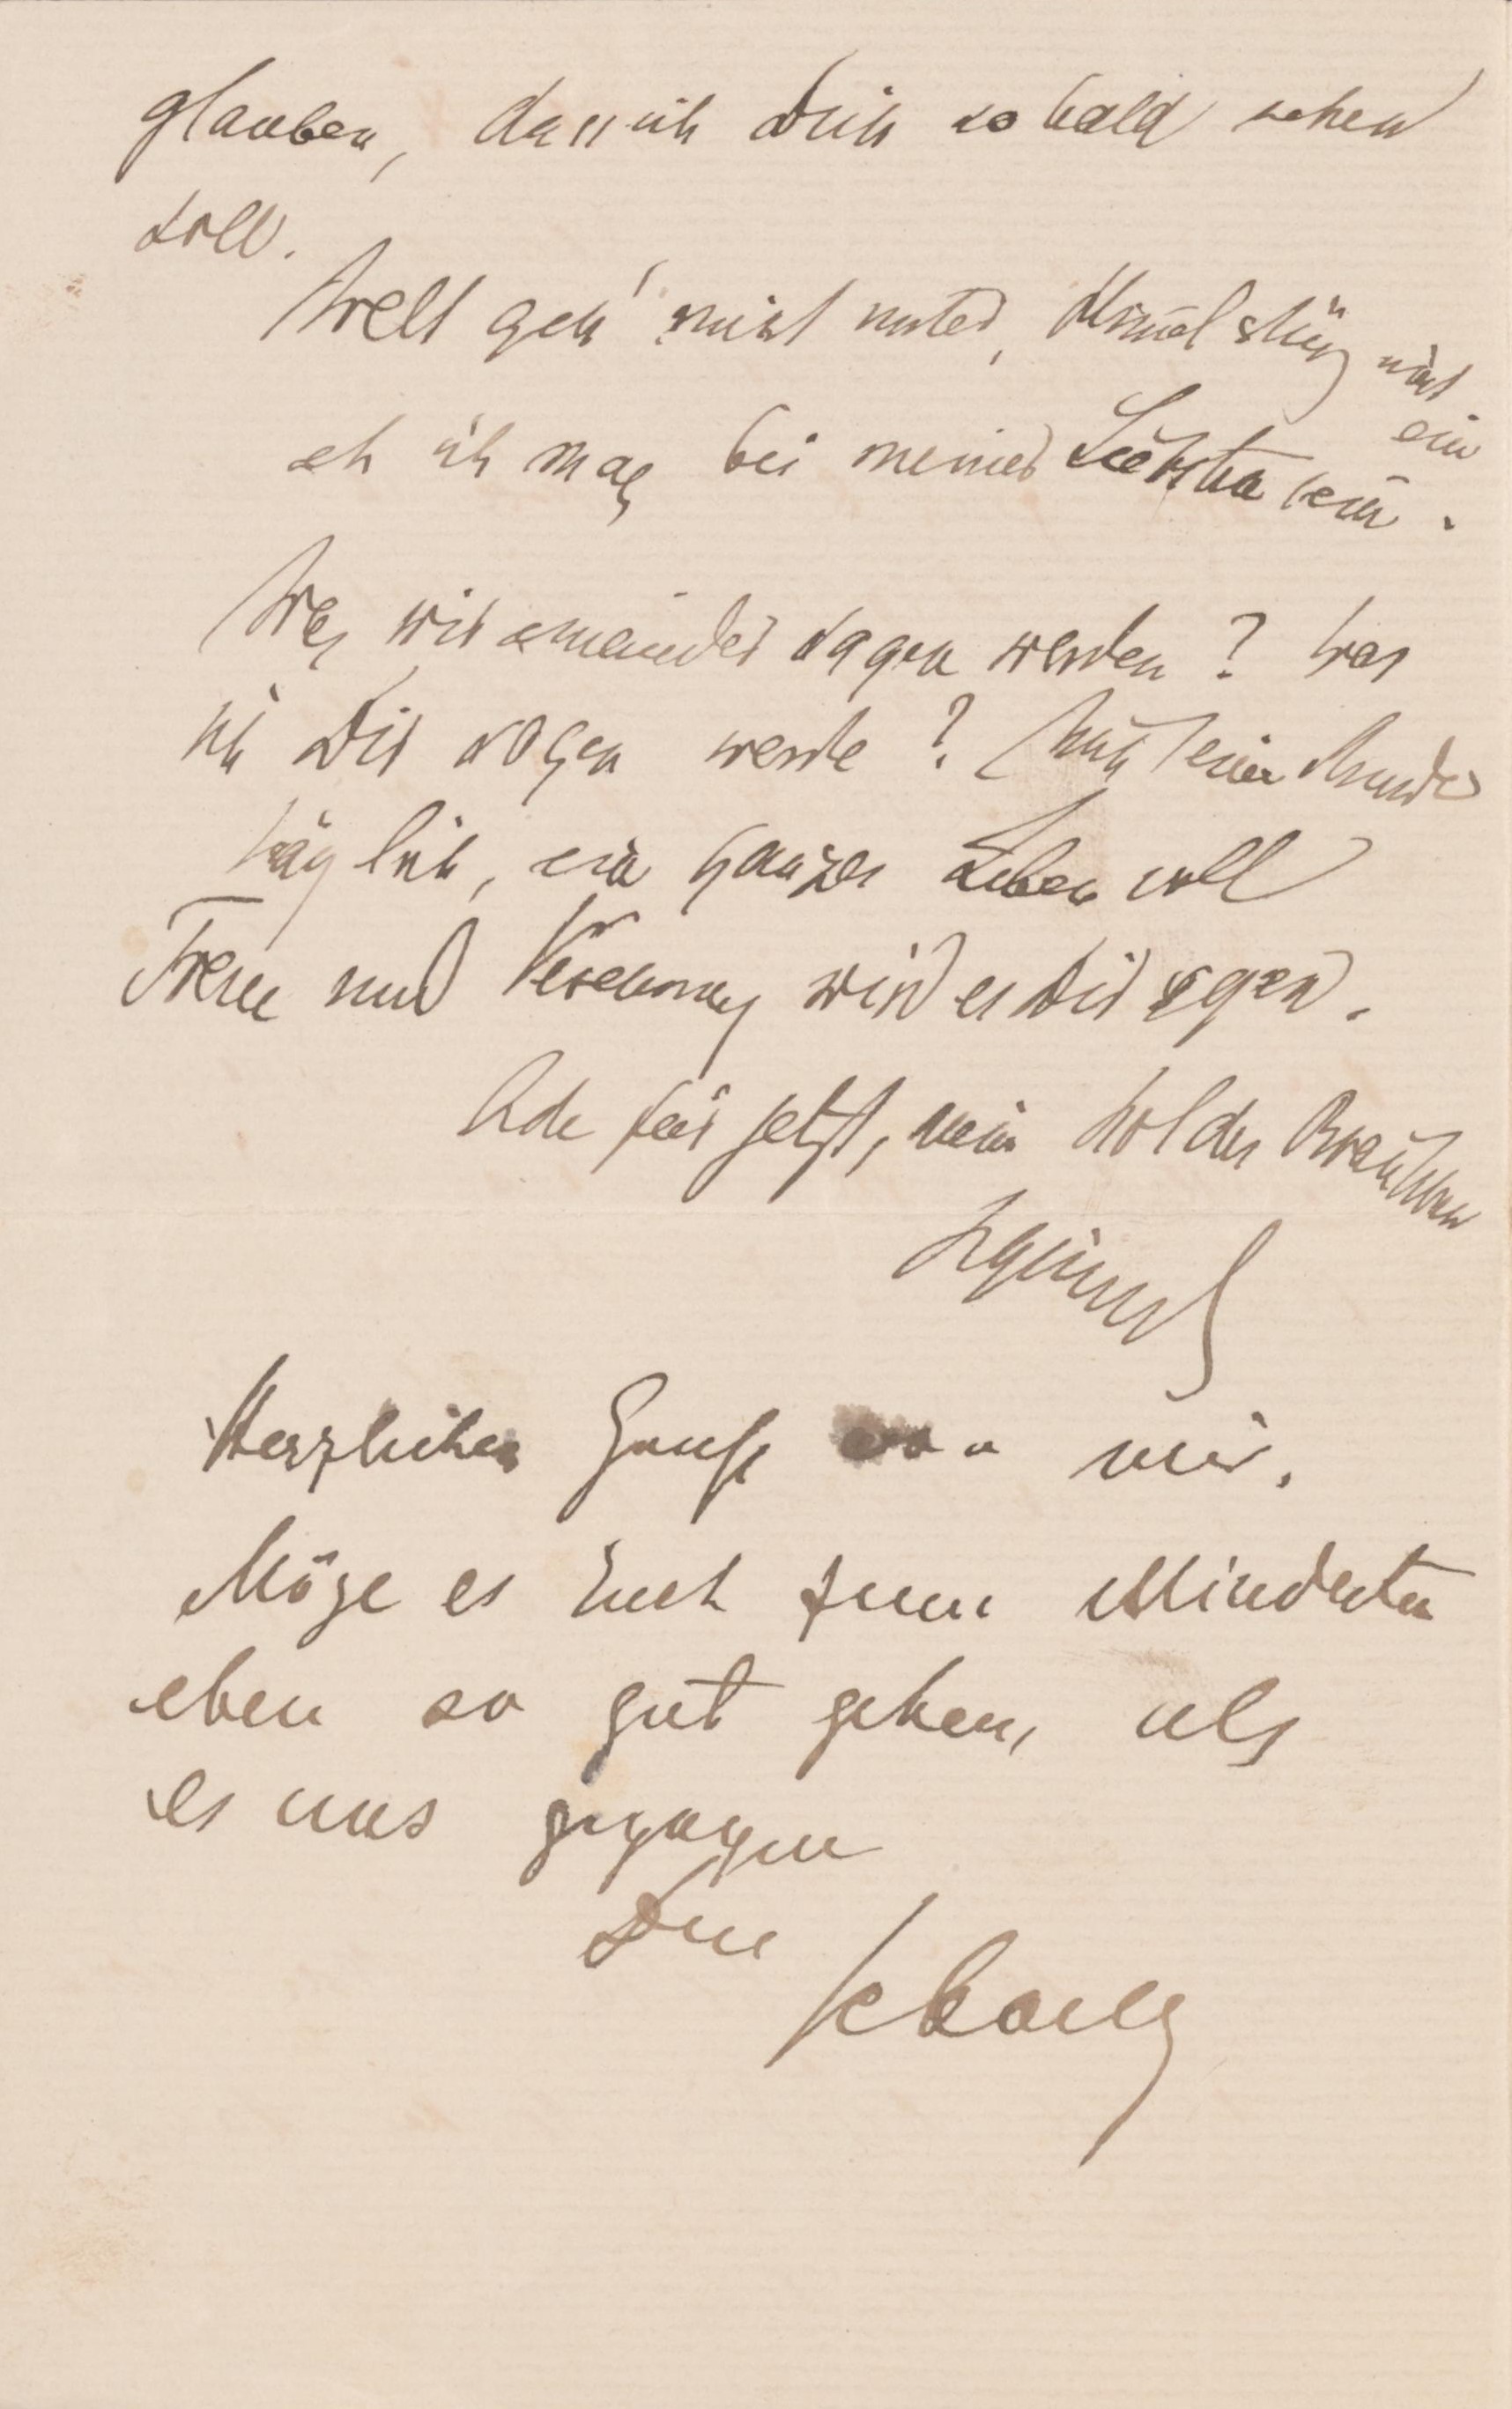 glauben, dass ich Dich so bald sehen
soll.
Welt geh' nicht unter, Himmel stürz nicht
ein
eh ich mag bei meiner Liebsten sein.
Was wir einander sagen werden? Was
ich Dir sagen werde? Nicht eine Stunde
täglich, ein ganzes Leben voll
Treue und Verehrung wird es Dir sagen.
Ade für jetzt, mein holdes Brautchen
Sigmund
Herzlichen Gruß von mir.
Möge es Euch zum Mindesten
eben so gut gehen, als
es uns gegangen
Dein
Schönberg